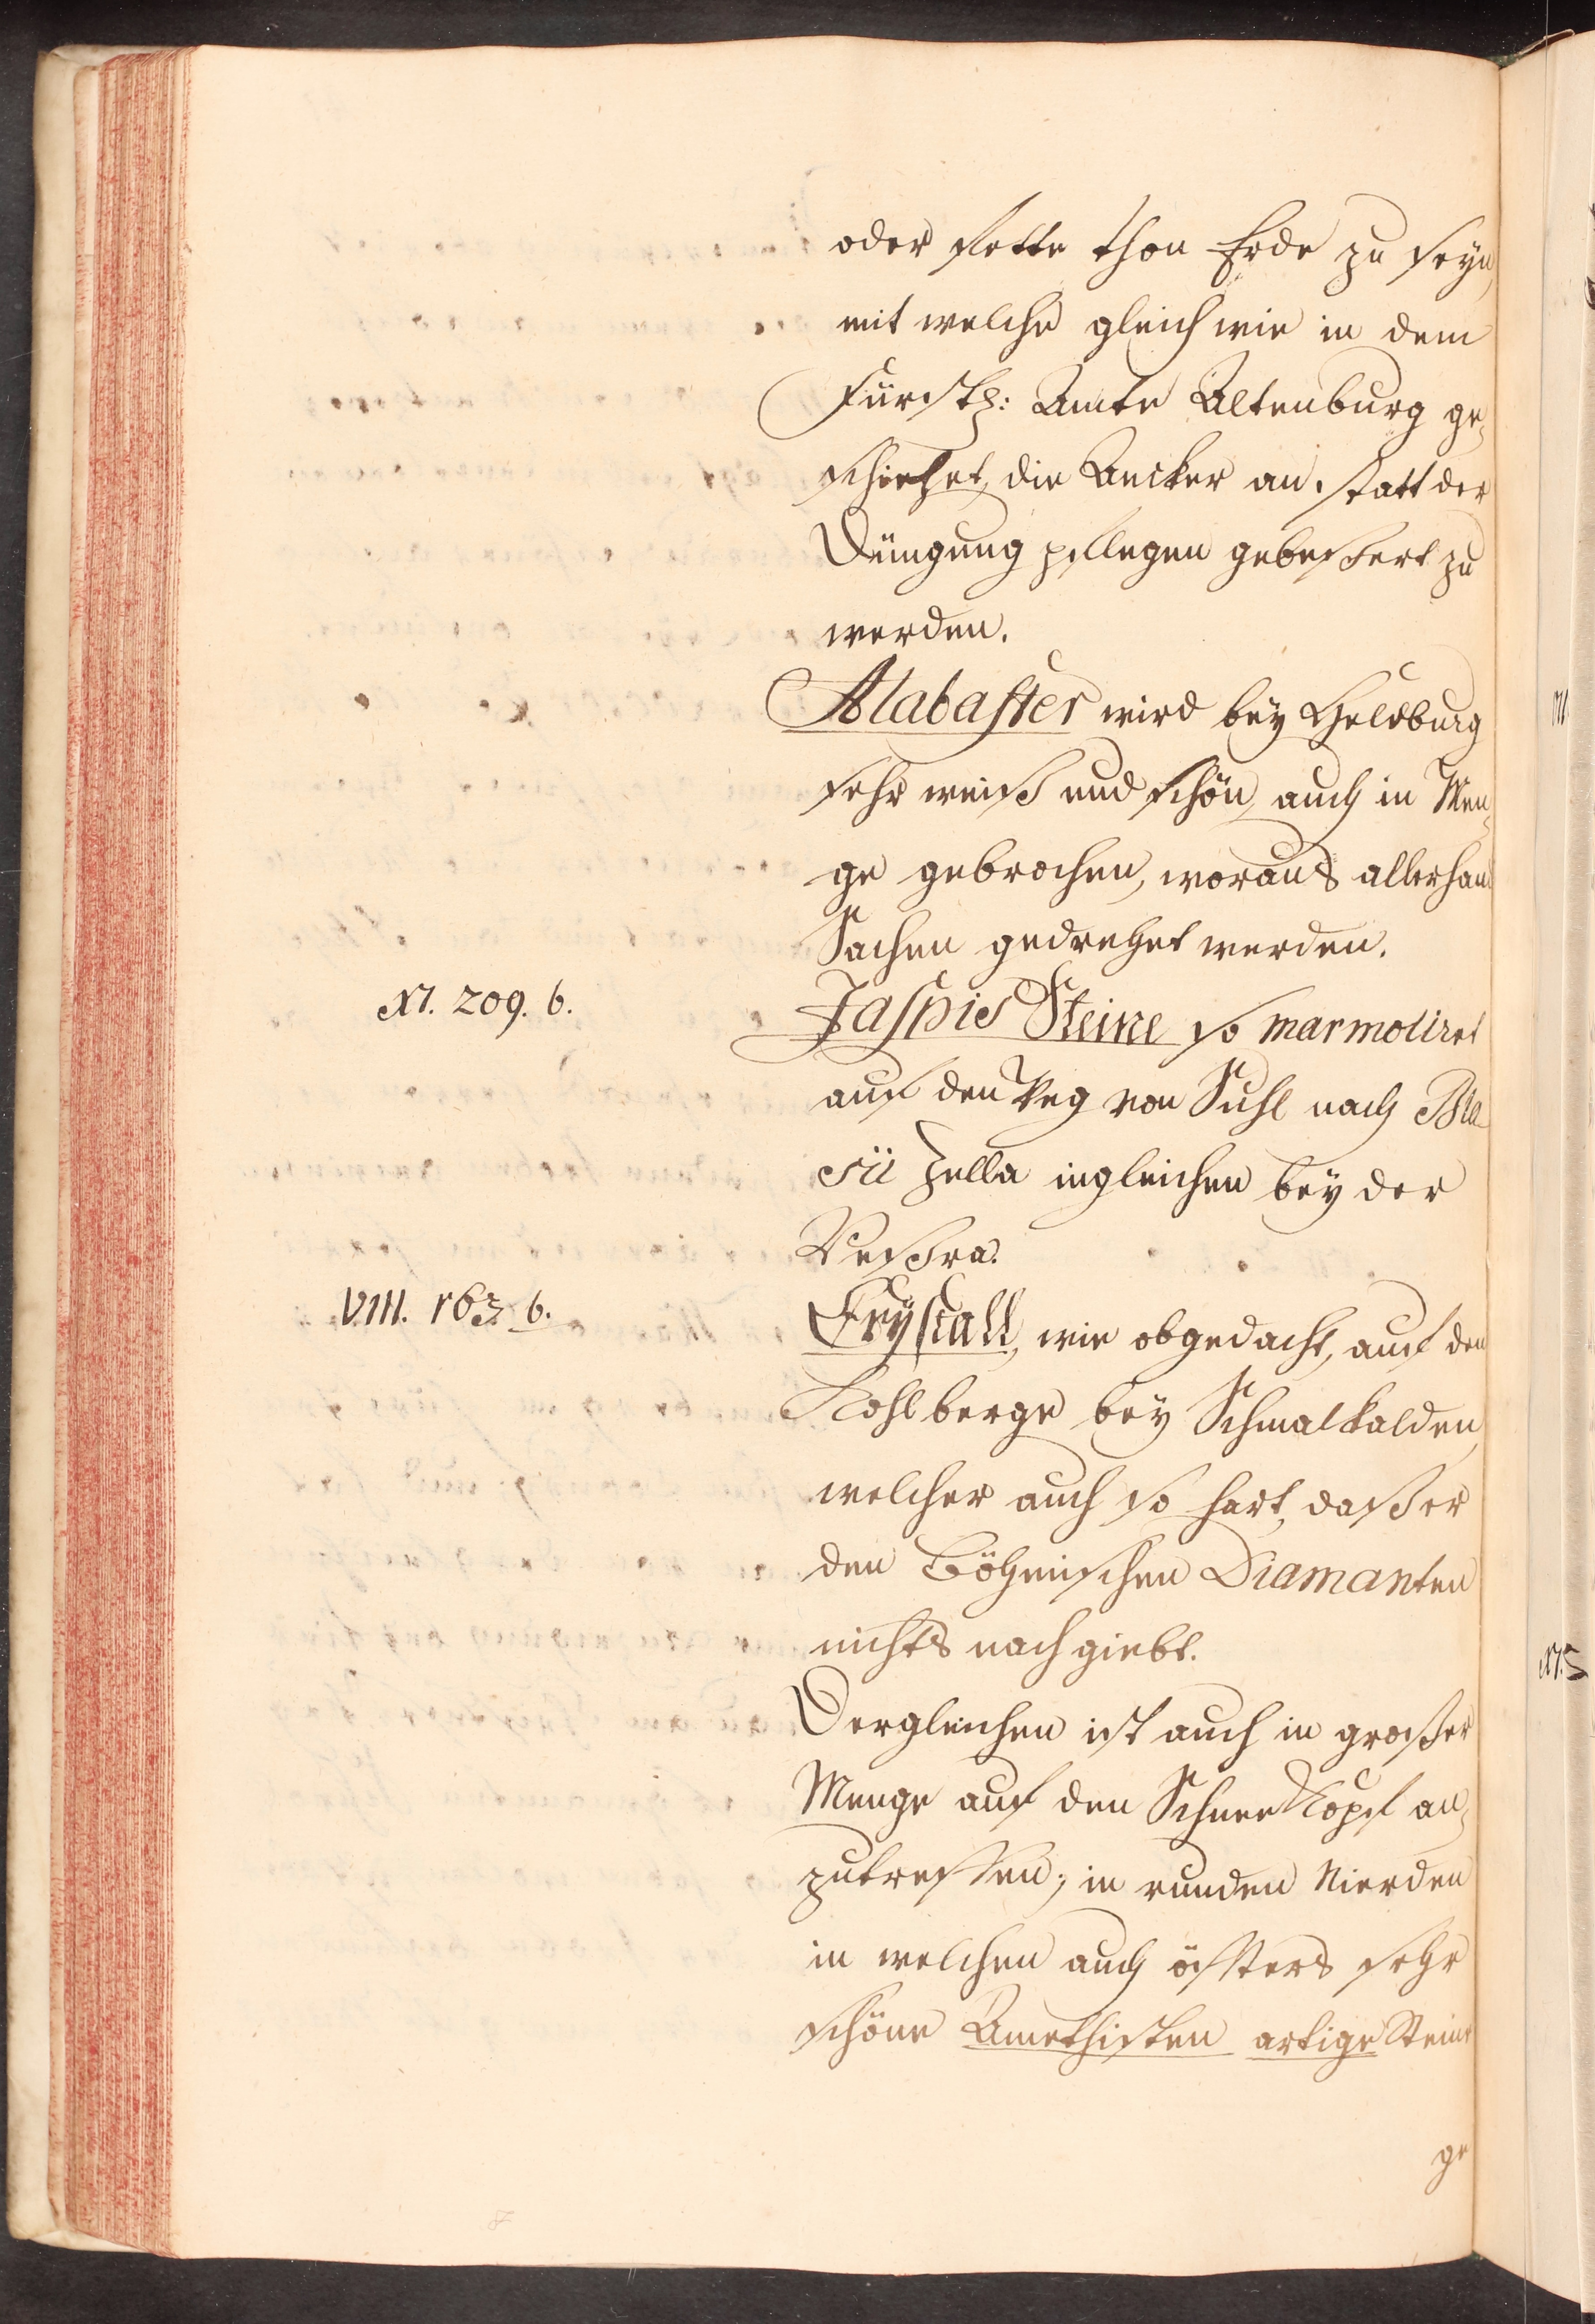 oder fette Thon Erde zu seyn,
mit welche gleich wie in dem
Fürstl: Amte Altenburg ge-
schiehet, die Aecker an statt der
Düngung pflegen gebeßert zu
werden.
Alabaster wird bey Heldburg
sehr weiß und schön, auch in Men-
ge gebrochen, woraus allerhand
Sachen gedrehet werden.
XI. 209. b.
Jaspis Steine so marmoliret
auf den Weg von Suhl nach Bla-
sii Zella ingleichen bey der
Veßra.
VIII. 163 b.
Crystall, wie obgedacht, auf den
Kohlberge bey Schmalkalden,
welcher auch so hart, daß er
den Böhmischen Diamanten
nichts nach giebt.
Dergleichen ist auch in großer
Menge auf den Schnee Kopf an-
zutreffen; in runden Nierden
in welchen auch öffters sehr
schöne Amethisten artige Steine
ge